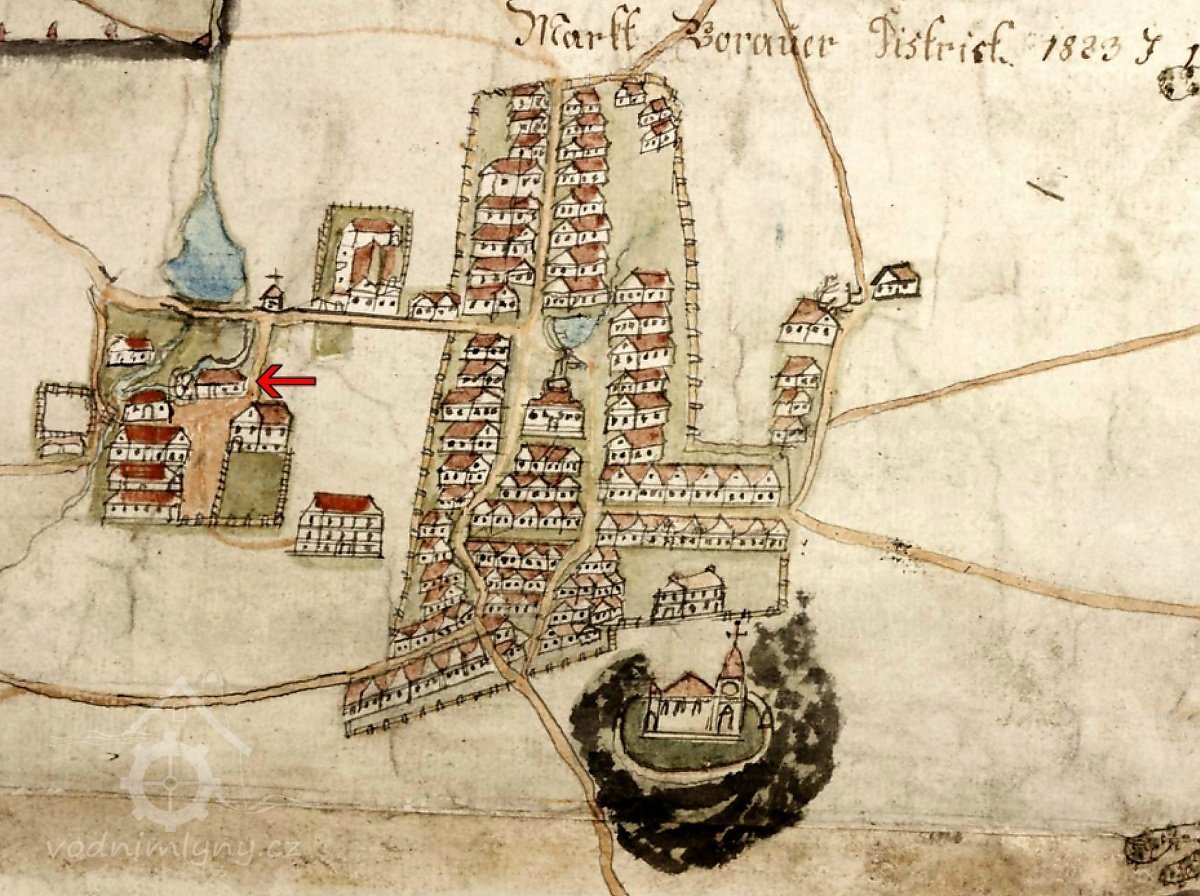 Markt Borauer District. 1883 J 1
vodnimlyny.cz